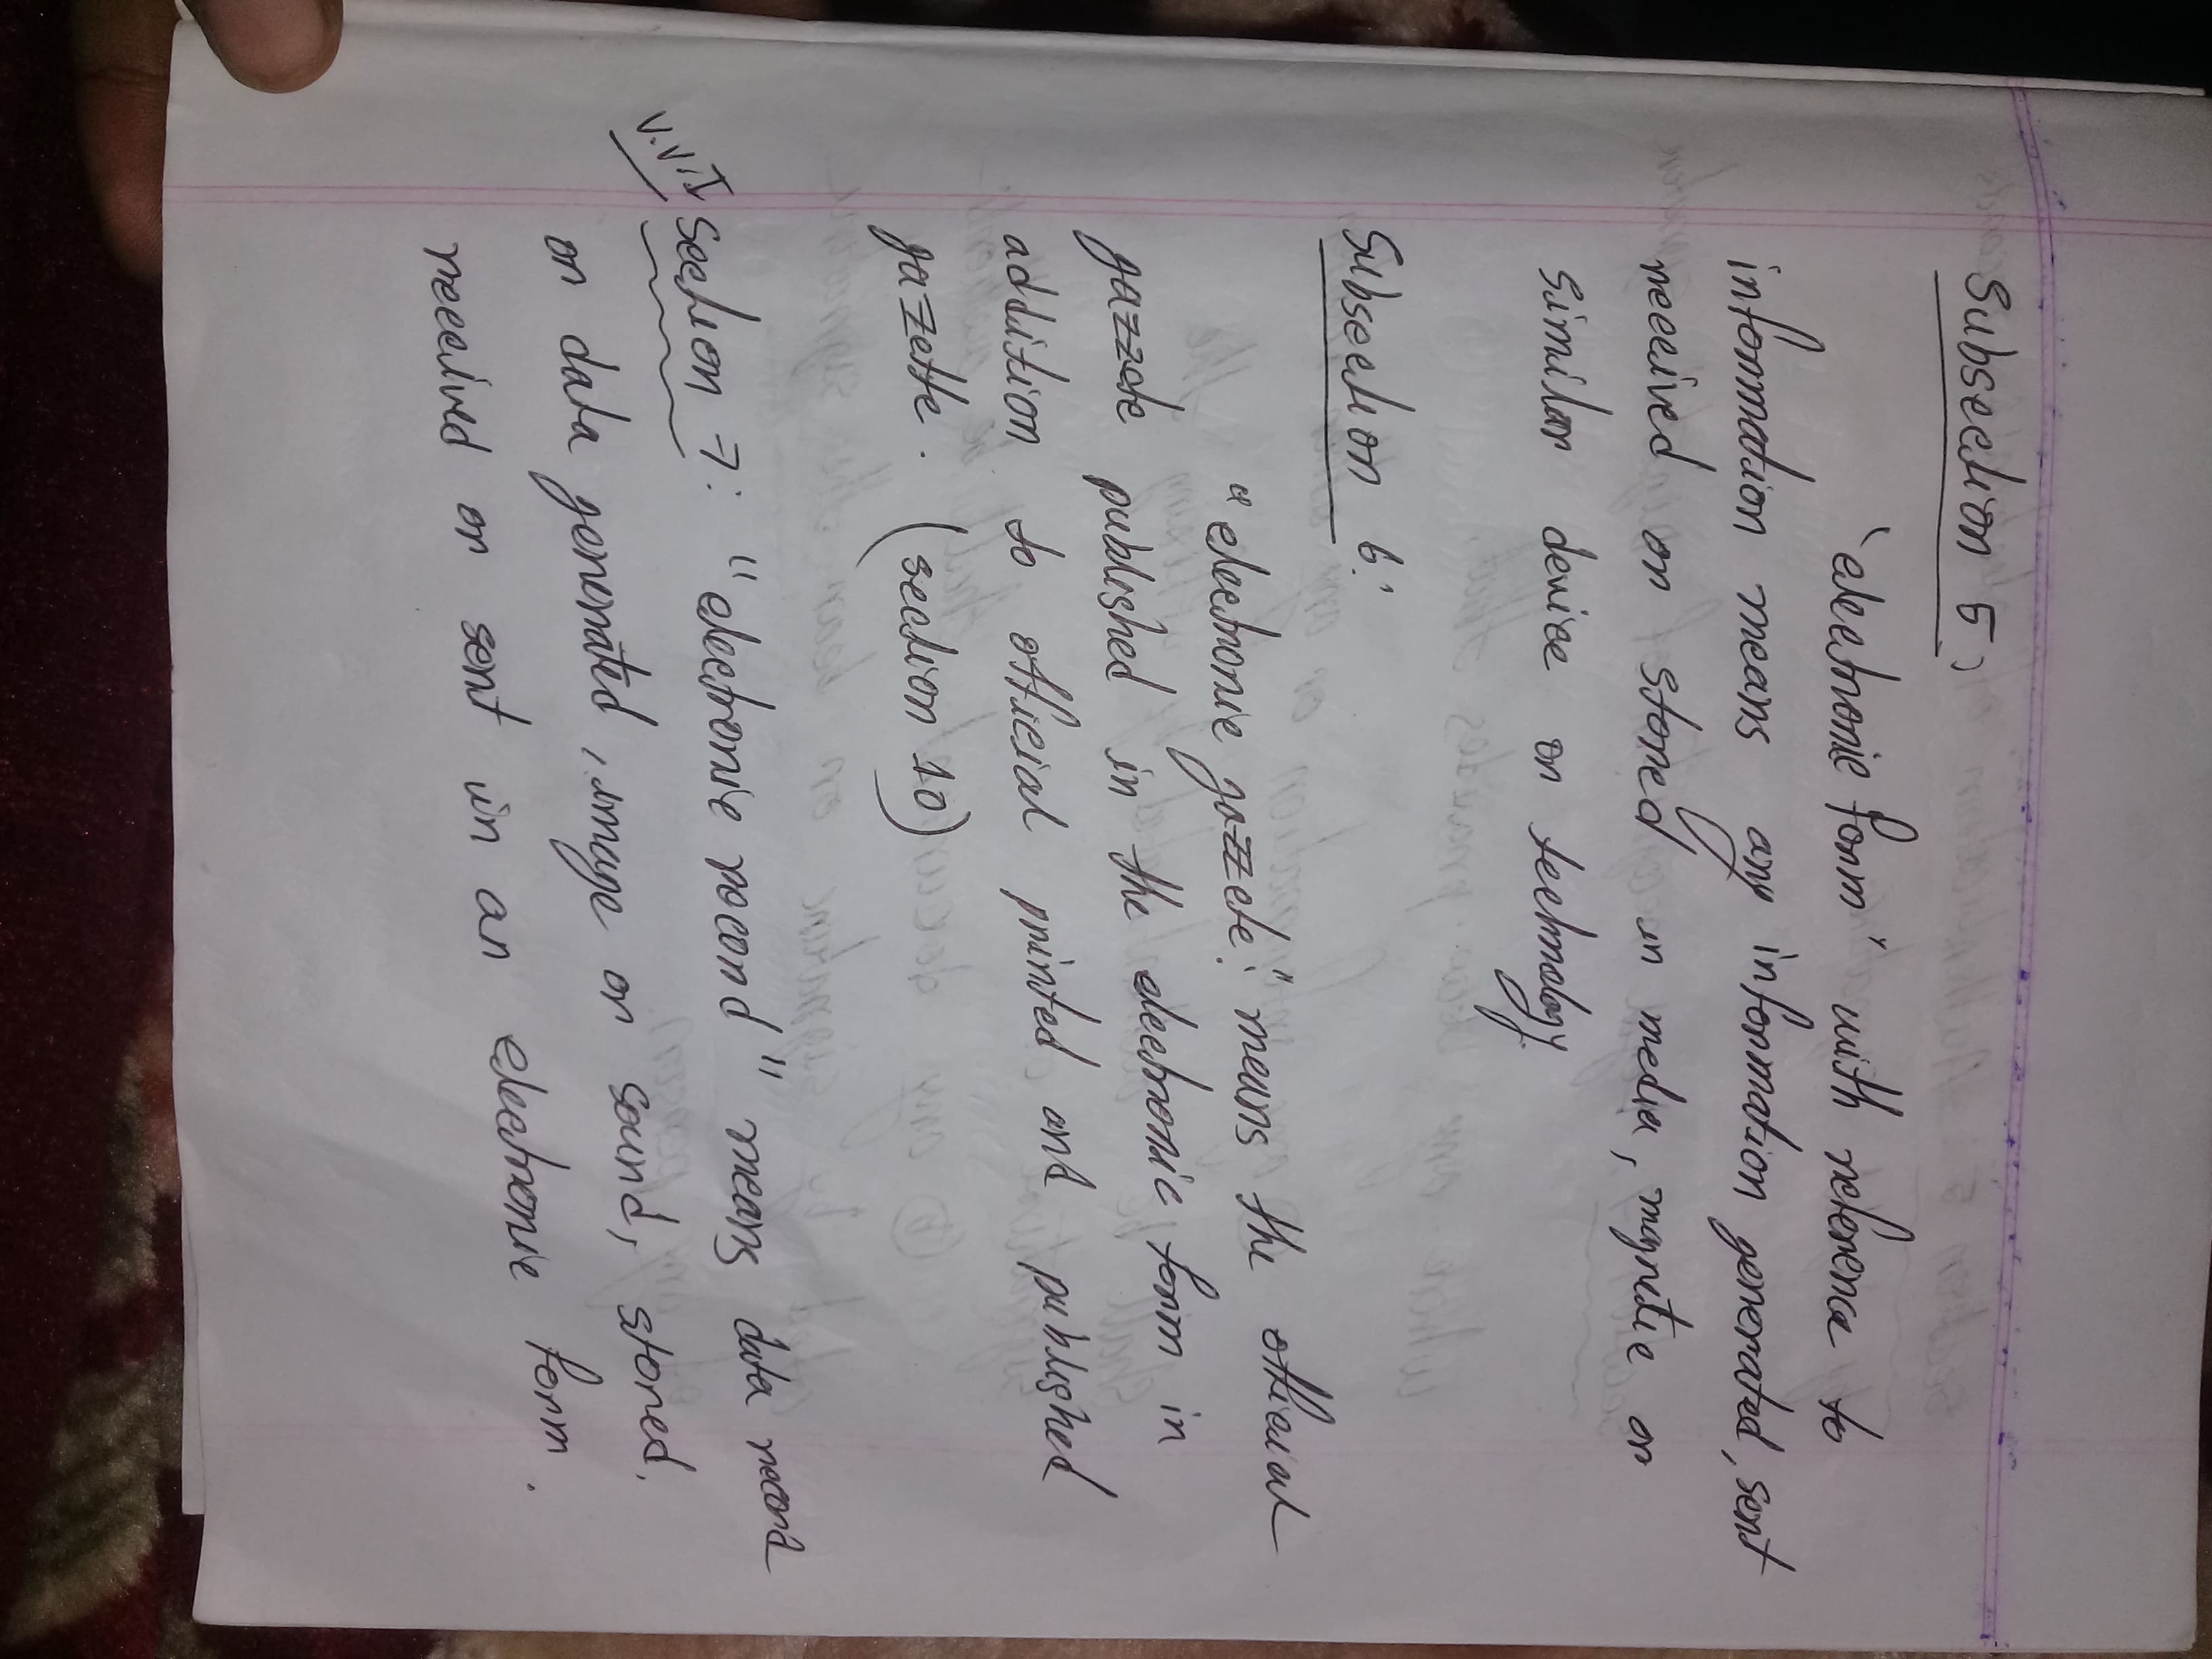 Subsection 5:
"electronic form" with reference to
information means any information generated, sent
received or stored in media, magnetic or
similar device or technology.
Subsection 6:
"electronic gazzete": means the official
gazzete published in the electronic form in
addition to official printed and published
gazette. (section 10)
V.V.I Section 7: "electronic record" means data record
or data generated, image or sound, stored,
received or sent in an electronic form.